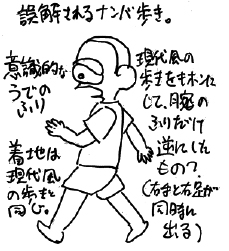 誤解されるナンバ歩き。
現代風の
歩きをキホンに
して、腕の
ふりだけ
逆にした
もの?
(右手と右足が
同時に
出る)
意識的な
うでの
ふり
着地は
現代風
の歩きと
同じ。